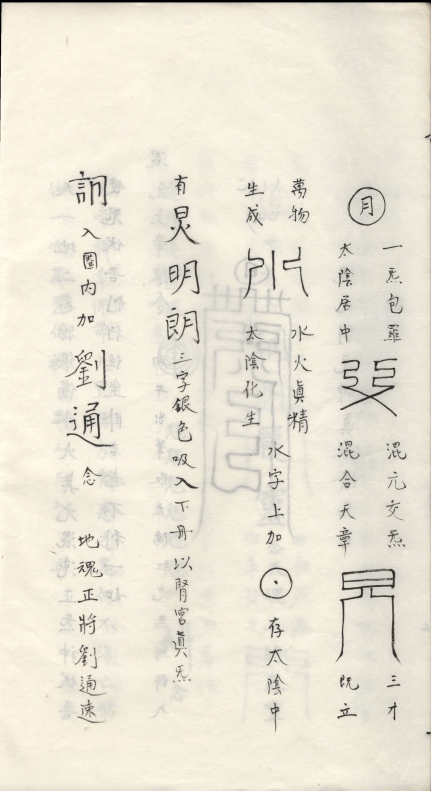 月
一炁包羅
太陰居中
混元交炁
混合天章
三才
既立
萬物
生成
水火眞精
太陰化生
水字上加
存太陰中
有炅明朗三字銀色吸入下丹以腎宮眞炁
入圈内加劉通念地魂正將劉通速